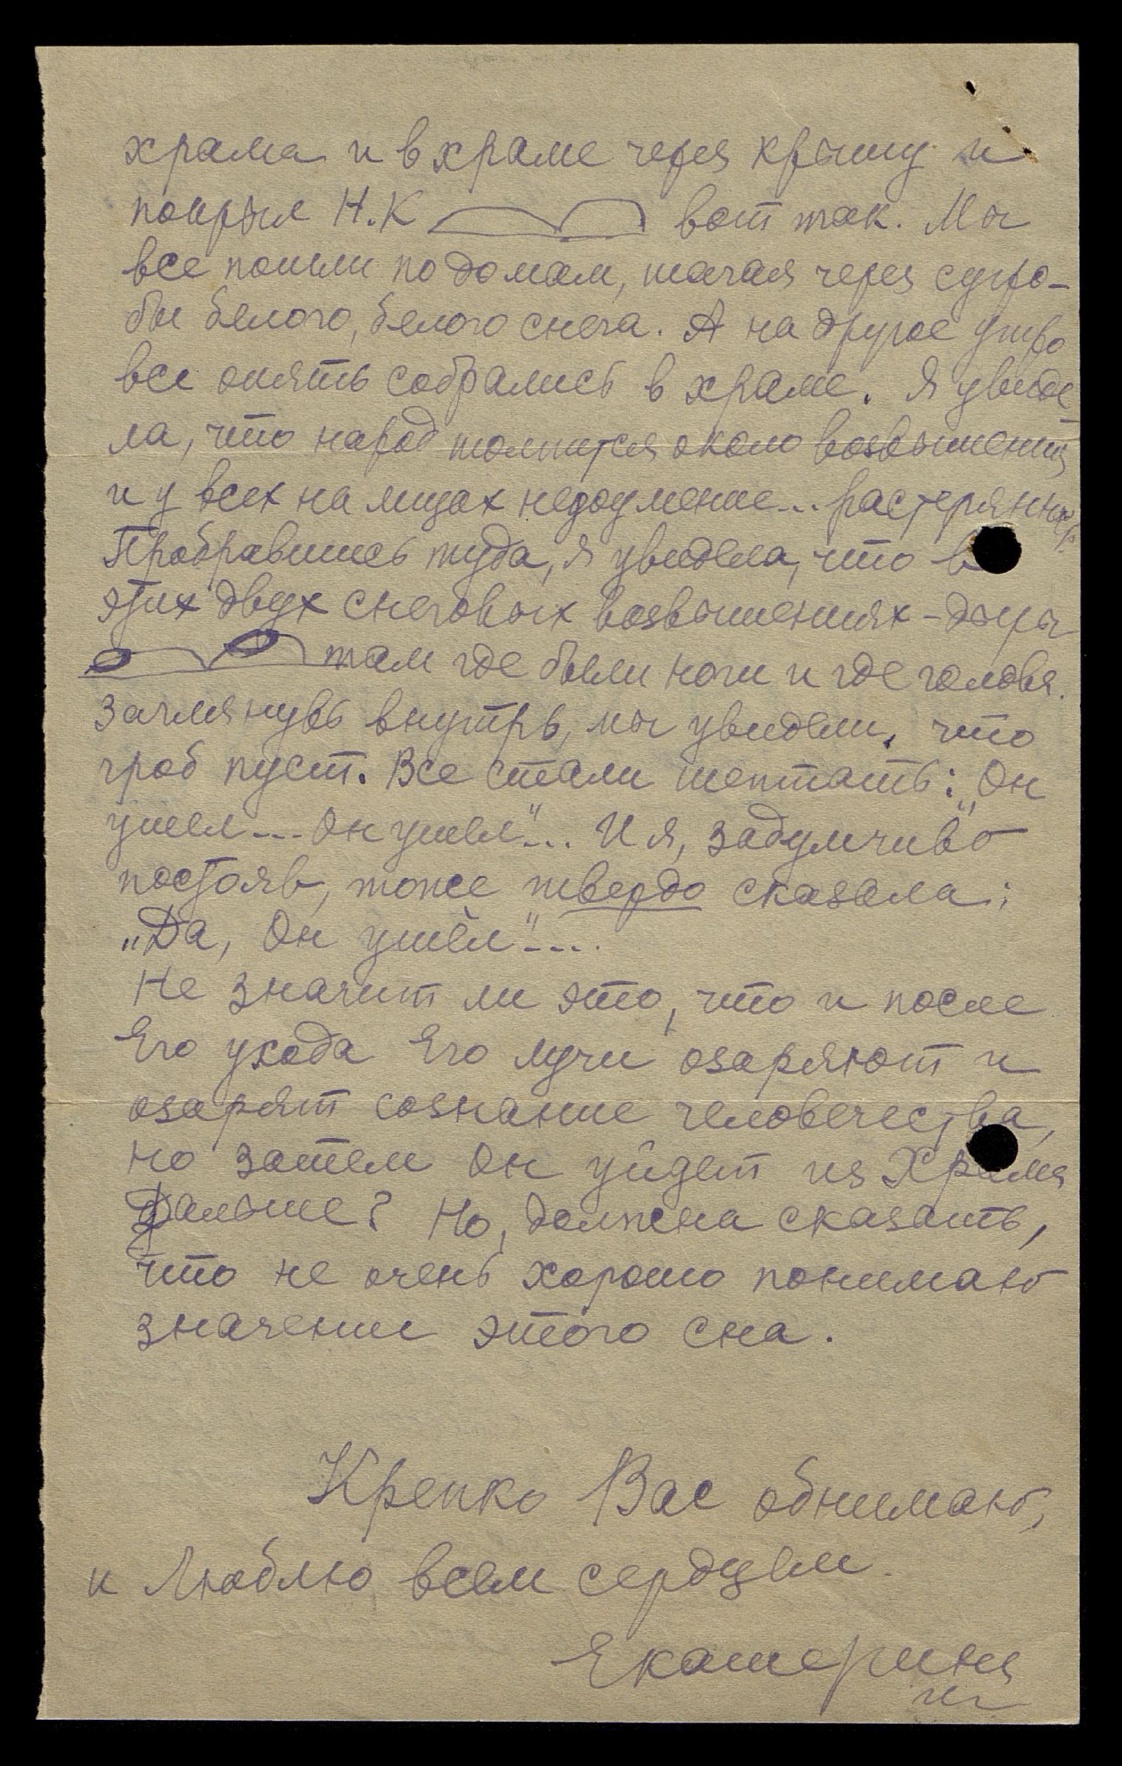 храма и в храме через крышу и
покрыл Н.К вот так. Мы
все пошли по домам, шагая через сугро-
бы белого, белого снега. А на другое утро
все опять собрались в храме. Я увиде-
ла, что народ толпится около возвышений,
и у всех на лицах недоумение... растерянн
Пробравшись туда, я увидела, что в
этих двух снеговых возвышениях - дыры
там где были ноги и где голова.
Заглянув внутрь, мы увидели, что
гроб пуст. Все стали шептать: „Он
ушел... Он ушел"... И я, задумчиво
постояв, тоже твердо сказала:
„Да, Он ушёл"....
Не значит ли это, что и после
Его ухода Его лучи озаряют и
озарят сознание человечества,
но затем Он уйдет из Храма
дальше? Но, должна сказать,
что не очень хорошо понимаю
значение этого сна.
Крепко Вас обнимаю,
и Люблю всем сердцем.
Екатерина